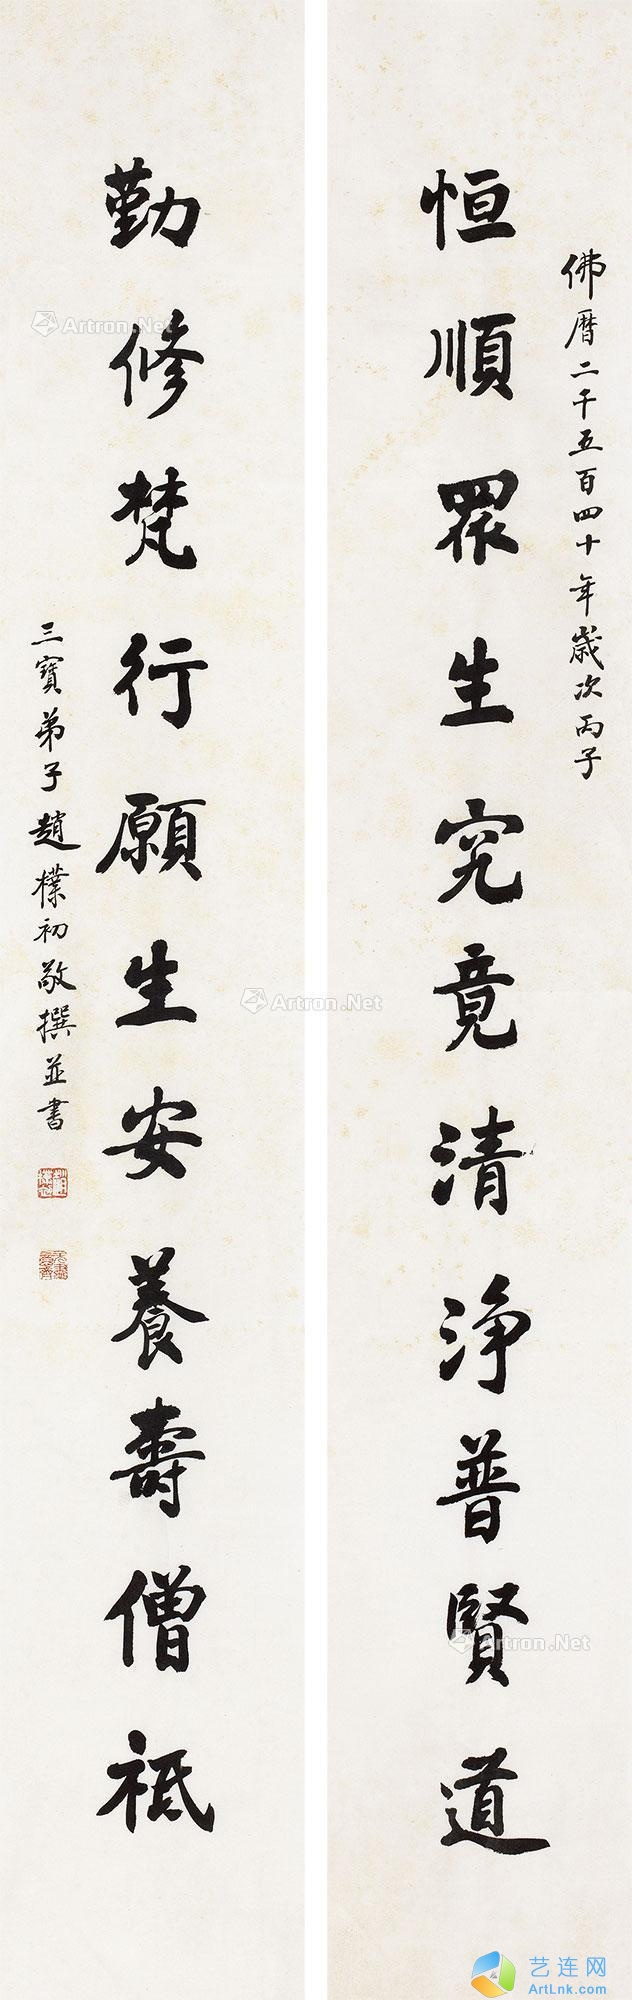 佛曆二千五百四十年歲次丙子
恒順眾生究竟清淨普賢道
勤修梵行願生安養壽僧祇
三寶弟子趙樸初敬撰並書
Artron.Net
Artron.Net
Artron.Net
艺连网
ArtLnk.com